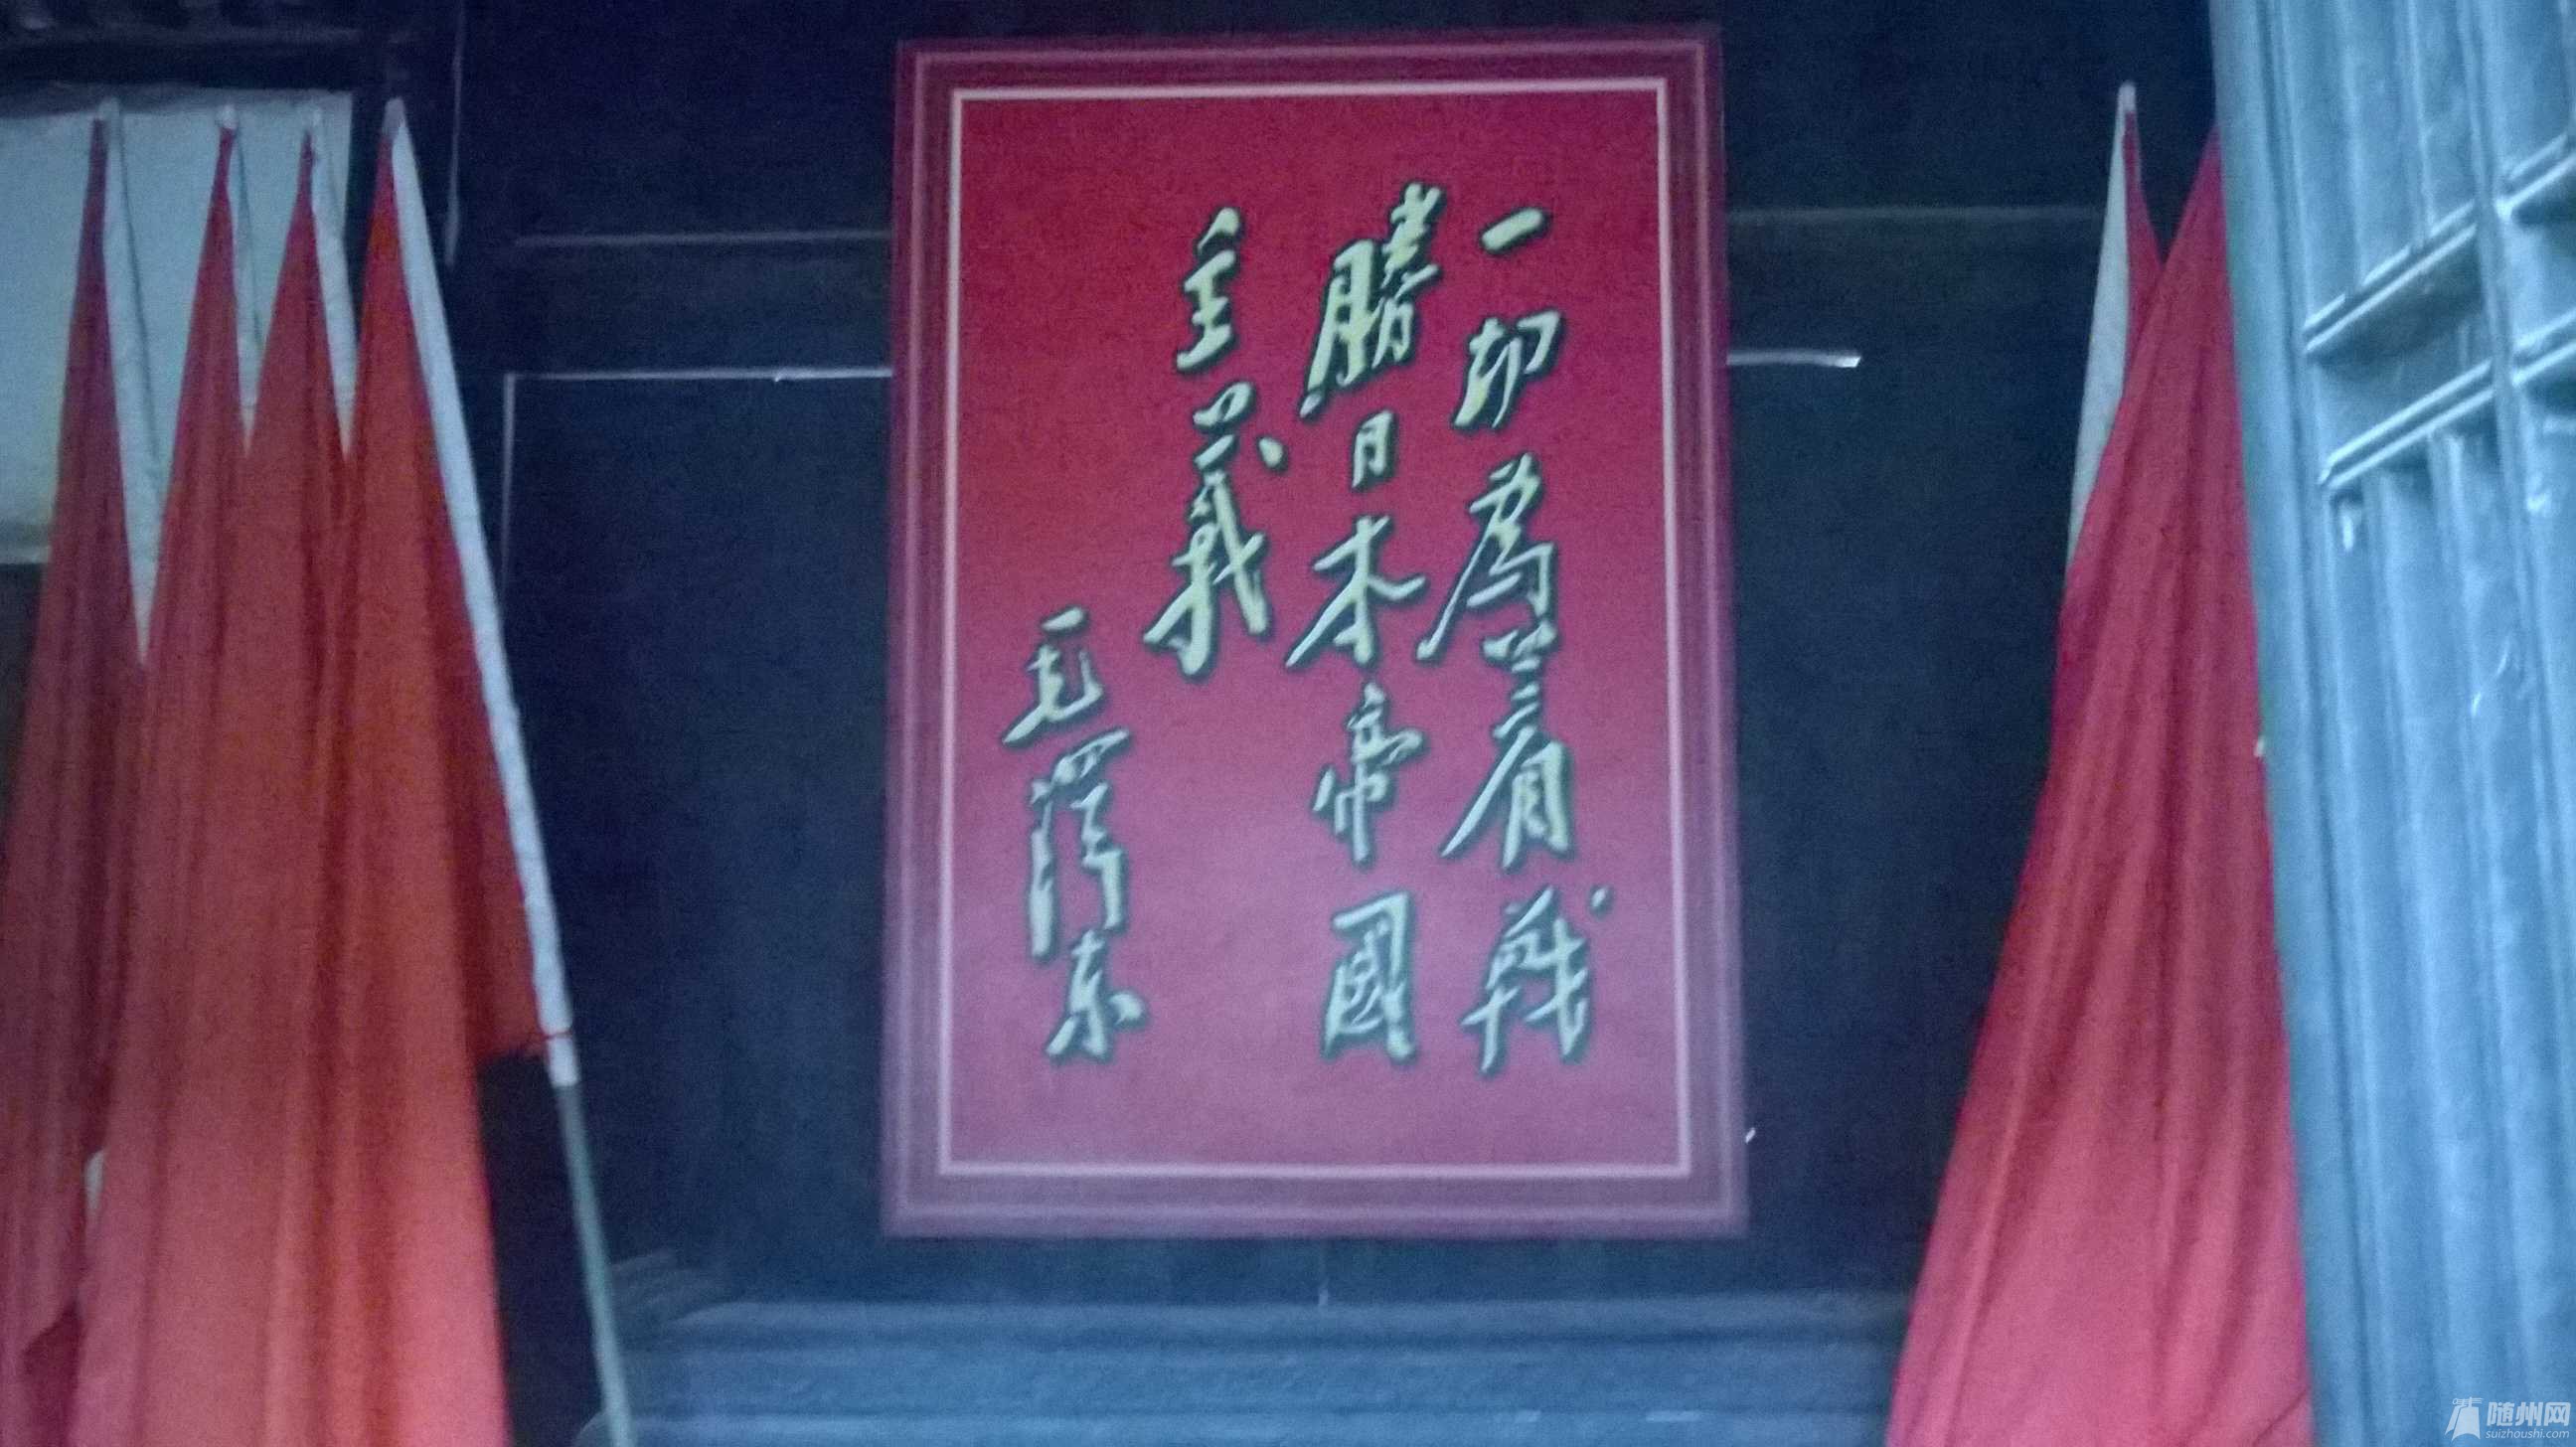 一切為着戰
勝日本帝國
主義
毛澤东
随州网
suizhoushi.com